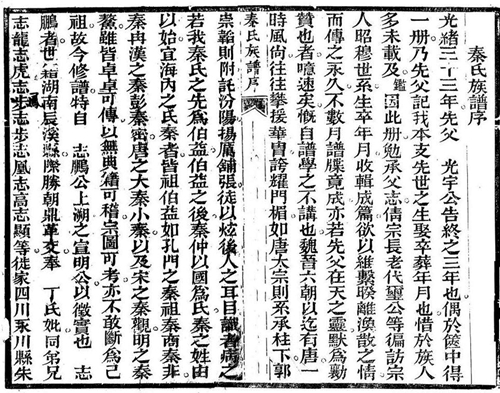 秦氏族譜序
光緒三十三年先父　光宇公告終之三年也偶於篋中得
一册乃先父記我本支先世之生娶卒葬年月也惜於族人
多未載及鑑因此册勉承父志倩宗長老代璽公等徧訪宗
人昭穆世系生卒年月收輯成篇欲以維繫暌離渙散之情
而傳之永久不數月譜牒竟成亦若先父在天之靈默為勷
贊也者噫速矣慨自譜學之不講也魏晉六朝以迄有唐一
時風尚往往攀援華冑誇耀門楣如唐太宗則系承柱下郭
秦氏族譜序
崇翰則附託汾陽揚厲舖張徒以炫後人之耳目識者病之
若我秦氏之先為伯益伯益之後秦仲以國為氏秦之姓由
以始宜海內之氏秦者皆祖伯益如孔門之秦祖秦南秦非
秦冉漢之秦彭秦密唐之大秦小秦以及宋之秦觀明之秦
鰲雖皆卓卓可傳以無典籍可稽宗圖可考亦不敢斷為己
祖故今修譜特自　志鵬公上溯之宣明公以徵實也　志
鵬者世籍湖南辰溪縣際勝朝鼎革奉　丁氏妣同弟兄
志龍志虎志步志鳳志高志顯等徙家四川永川縣朱